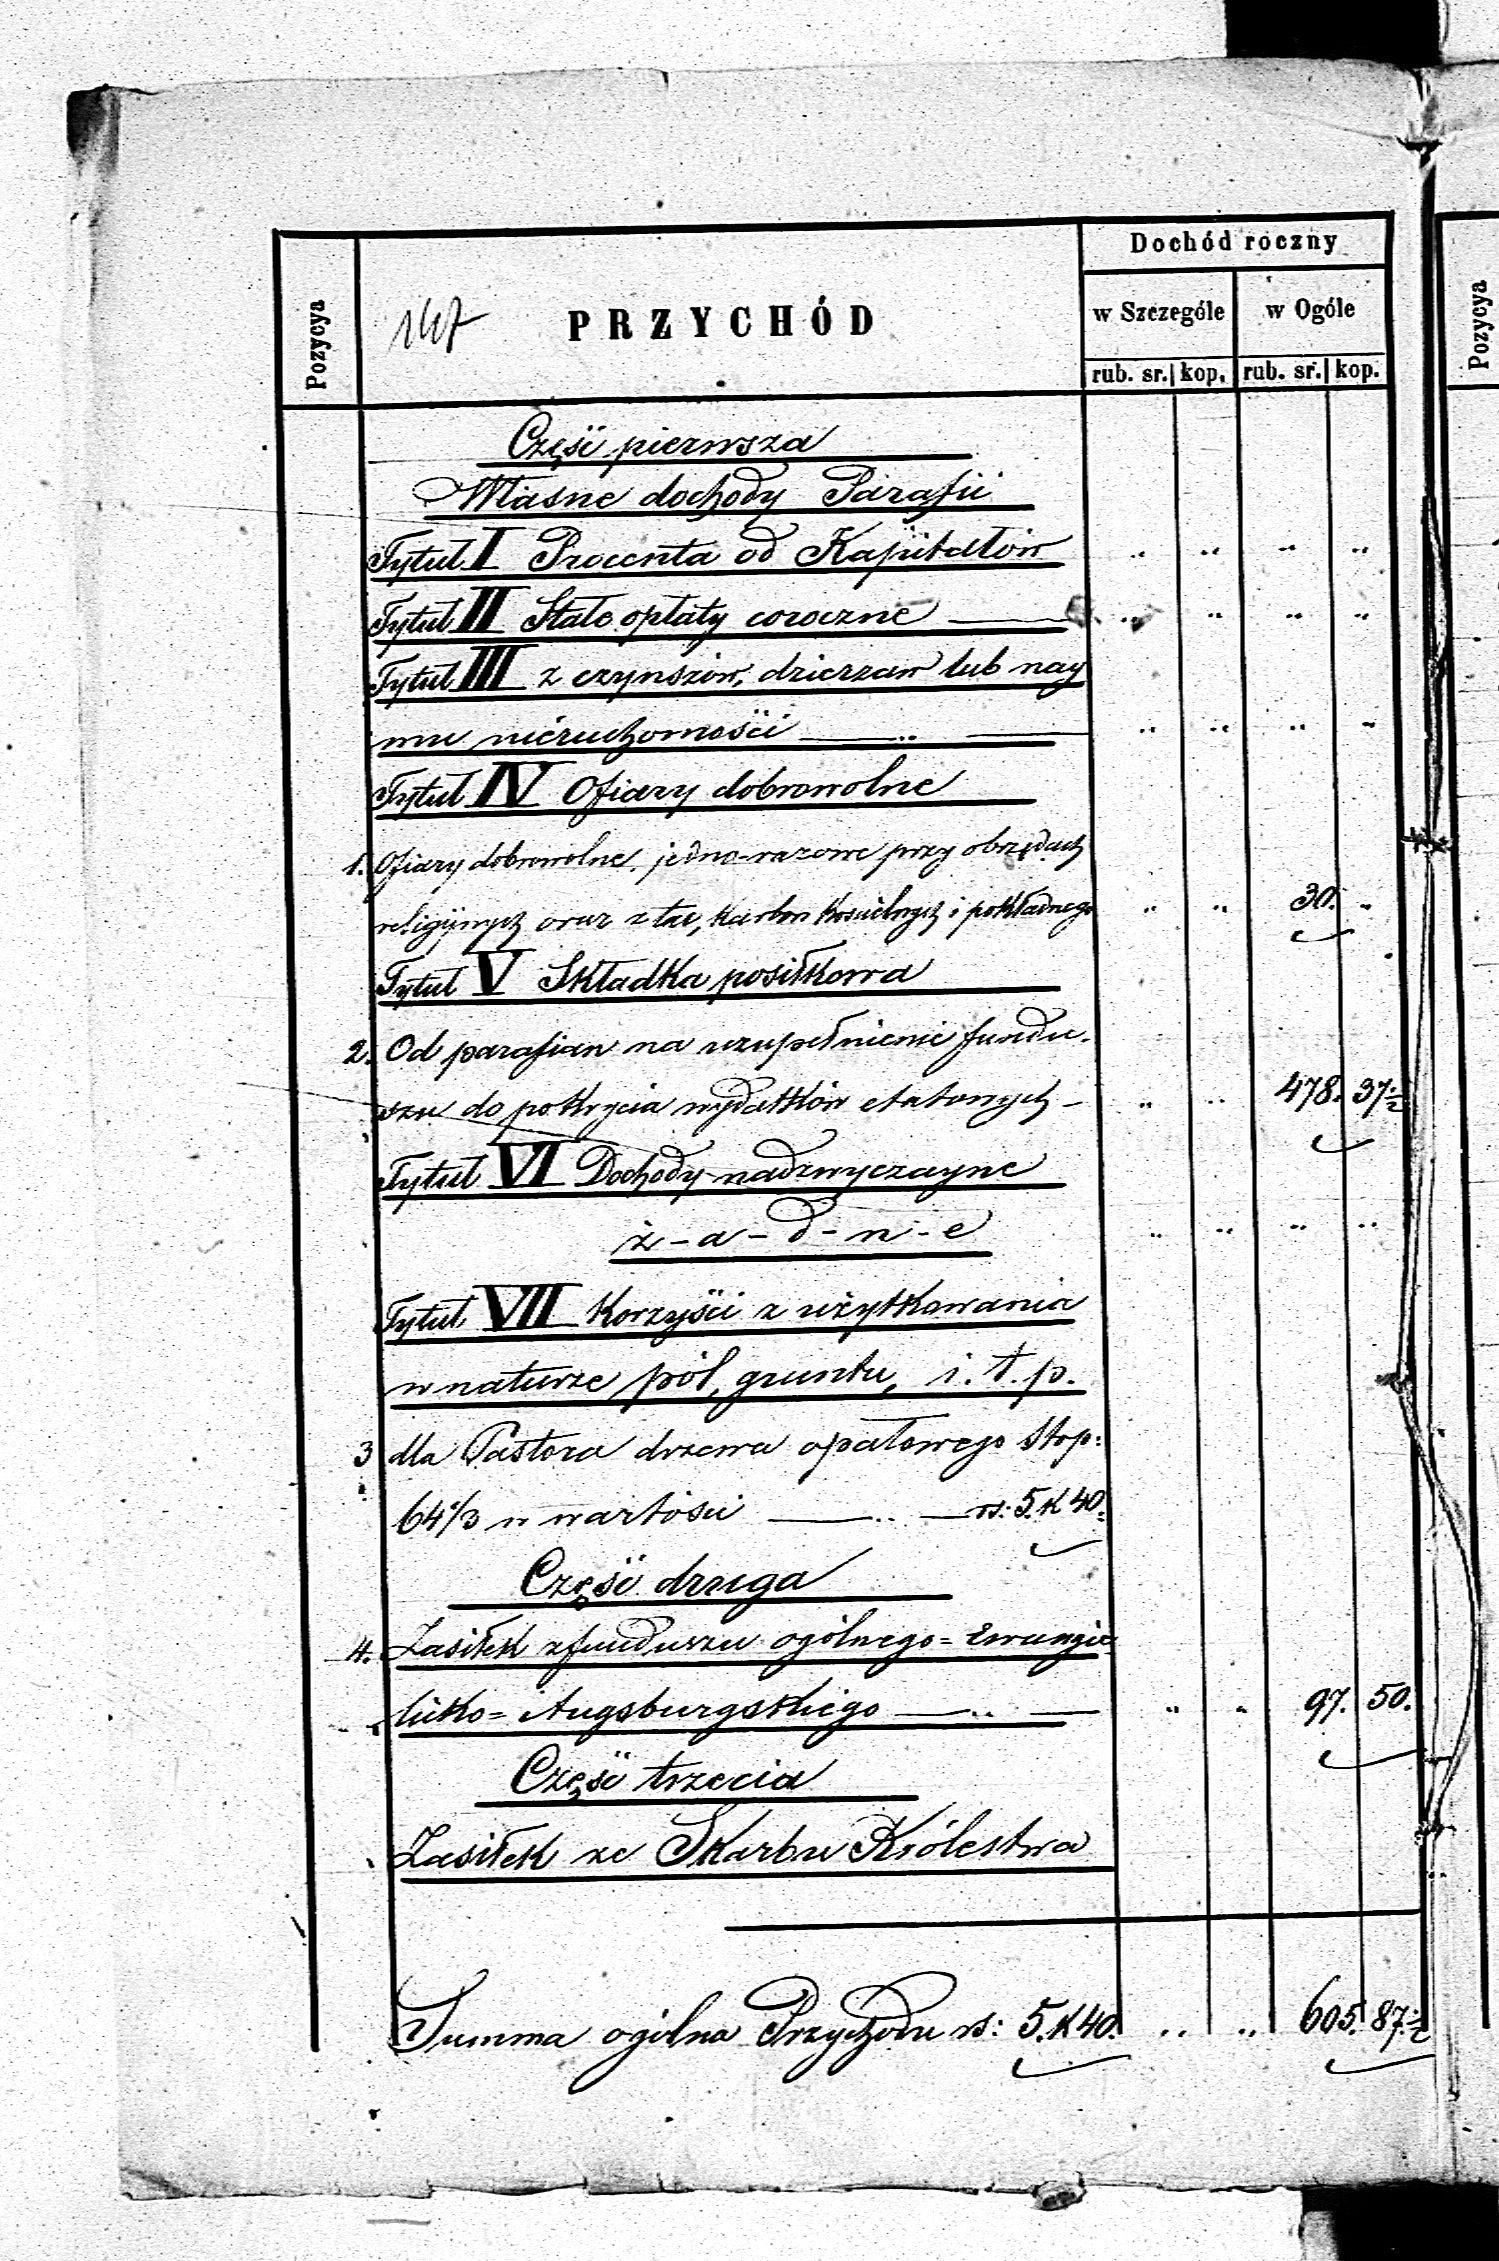 Dochód roczny
Pozycya
147
PRZYCHÓD
w Szczególe
w Ogóle
Pozycya
rub. sr. kop. rub. sr. kop.
Część pierwsza
Własne dochody Parafii
Tytuł I Procenta od Kapitałów " " " "
Tytuł II Stałe opłaty coroczne — " " " "
Tytuł III z czynszów, dzierzaw lub nay
mu nieruchomości — " — " " " "
Tytuł IV Ofiary dobrowolne
1. Ofiary dobrowolne jedno-razowe przy obrzędach
religijnych oraz z tac, karbon kościelnych i pokładnego " " 30. "
Tytuł V Składka posiłkowa
2. Od parafian na uzupełnienie fundu-
szu do pokrycia wydatków etatowych - " " 478. 37½
Tytuł VI Dochody nadzwyczayne
ż-a-d-n-e " " " "
Tytuł VII Korzyści z użytkowania
w naturze pól, gruntu, i.t.p.
3 dla Pastora drzewa opałowego Stop:
64⅓ w wartości — " — rs: 5. K 40.
Część druga
4. Zasiłek z funduszu ogólnego = Ewangie-
licko = Augsburgskiego — " — " " 97. 50.
Część trzecia
Zasiłek ze Skarbu Królestwa
Summa ogólna Przychodu rs: 5. K 40. " " 605. 87½